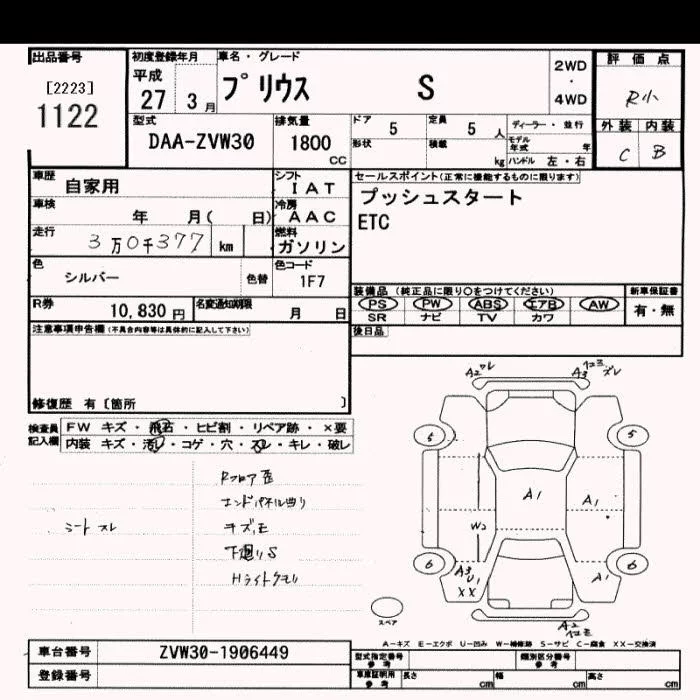 出品番号
[2223]
1122
初度登録年月
平成
27 3月
車名・グレード
プリウス S
2WD
・
4WD
評価点
R小
外装 内装
C B
型式
DAA-ZVW30
排気量
1800
CC
ドア 5
定員 5 人
形状
積載
kg
ディーラー・並行
モデル年式 年
ハンドル 左・右
車歴 自家用
シフト IAT
車検 年 月( 日)
冷房 AAC
走行 3万0千377 km
燃料 ガソリン
色 シルバー 色替
色コード 1F7
R券 10,830円
名変通知期限 月 日
セールスポイント(正常に機能するものに限ります)
プッシュスタート
ETC
装備品 (純正品に限り〇をつけてください)
PS PW ABS エアB AW
SR ナビ TV カワ
新車保証書
有・無
後日品
注意事項申告欄(不具合内容等は具体的に記入して下さい)
修復歴 有〔箇所 〕
検査員記入欄
FW キズ・飛石・ヒビ割・リペア跡・×要
内装 キズ・汚レ・コゲ・穴・スレ・キレ・破レ
シート スレ
Rフロア歪
エンドパネル曲り
キズ,E
下廻りS
Hライトクモリ
A2 ワレ
A3 ズレ
5 5
A1
A1
W2
6 6
A3
U1
XX
A1
A2
スペア
A-キズ E-エクボ U-凹み W-補修跡 S-サビ C-腐食 XX-交換済
車台番号 ZVW30-1906449
登録番号
型式指定番号
参考
類別区分番号
参考
車庫証明用
参考
長さ cm
幅 cm
高さ cm